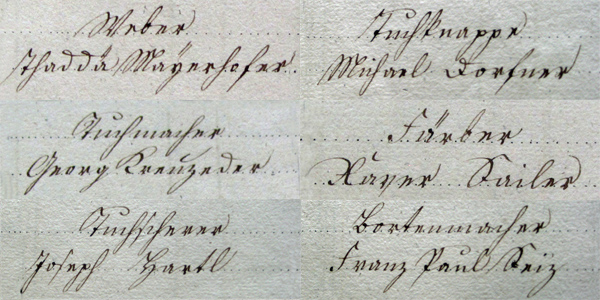 Weber
Thaddä Mäyerhofer
Tuchknappe
Michael Dorfner
Tuchmacher
Georg Kreuzeder
Färber
Xaver Sailer
Tuchscherer
Joseph Hartl
Bortenmacher
Franz Paul Seiz